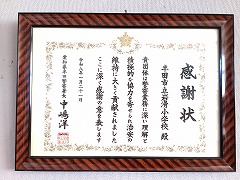 感謝状
半田市立岩滑小学校 殿
貴団体は警察業務に深い理解と
積極的な協力を寄せられ治安の
維持に大きく貢献されました
ここに深く感謝の意を表します
令和八年一月二十一日
愛知県半田警察署長 中嶋洋